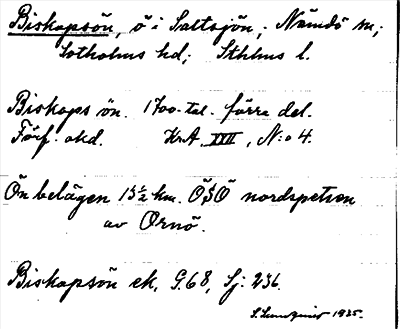 Biskopsön, ö i Saltsjön; Nämdö sn;
Sotholms hd; Sthlms l.
Biskops ön. 1700-tal. förra del.
Förf. okd. Kr.A. XVII, N:o 4.
Ön belägen 13½ km. OSO nordspetsen
av Ornö.
Biskopsön ek, G.68, Sj: 236.
1925.